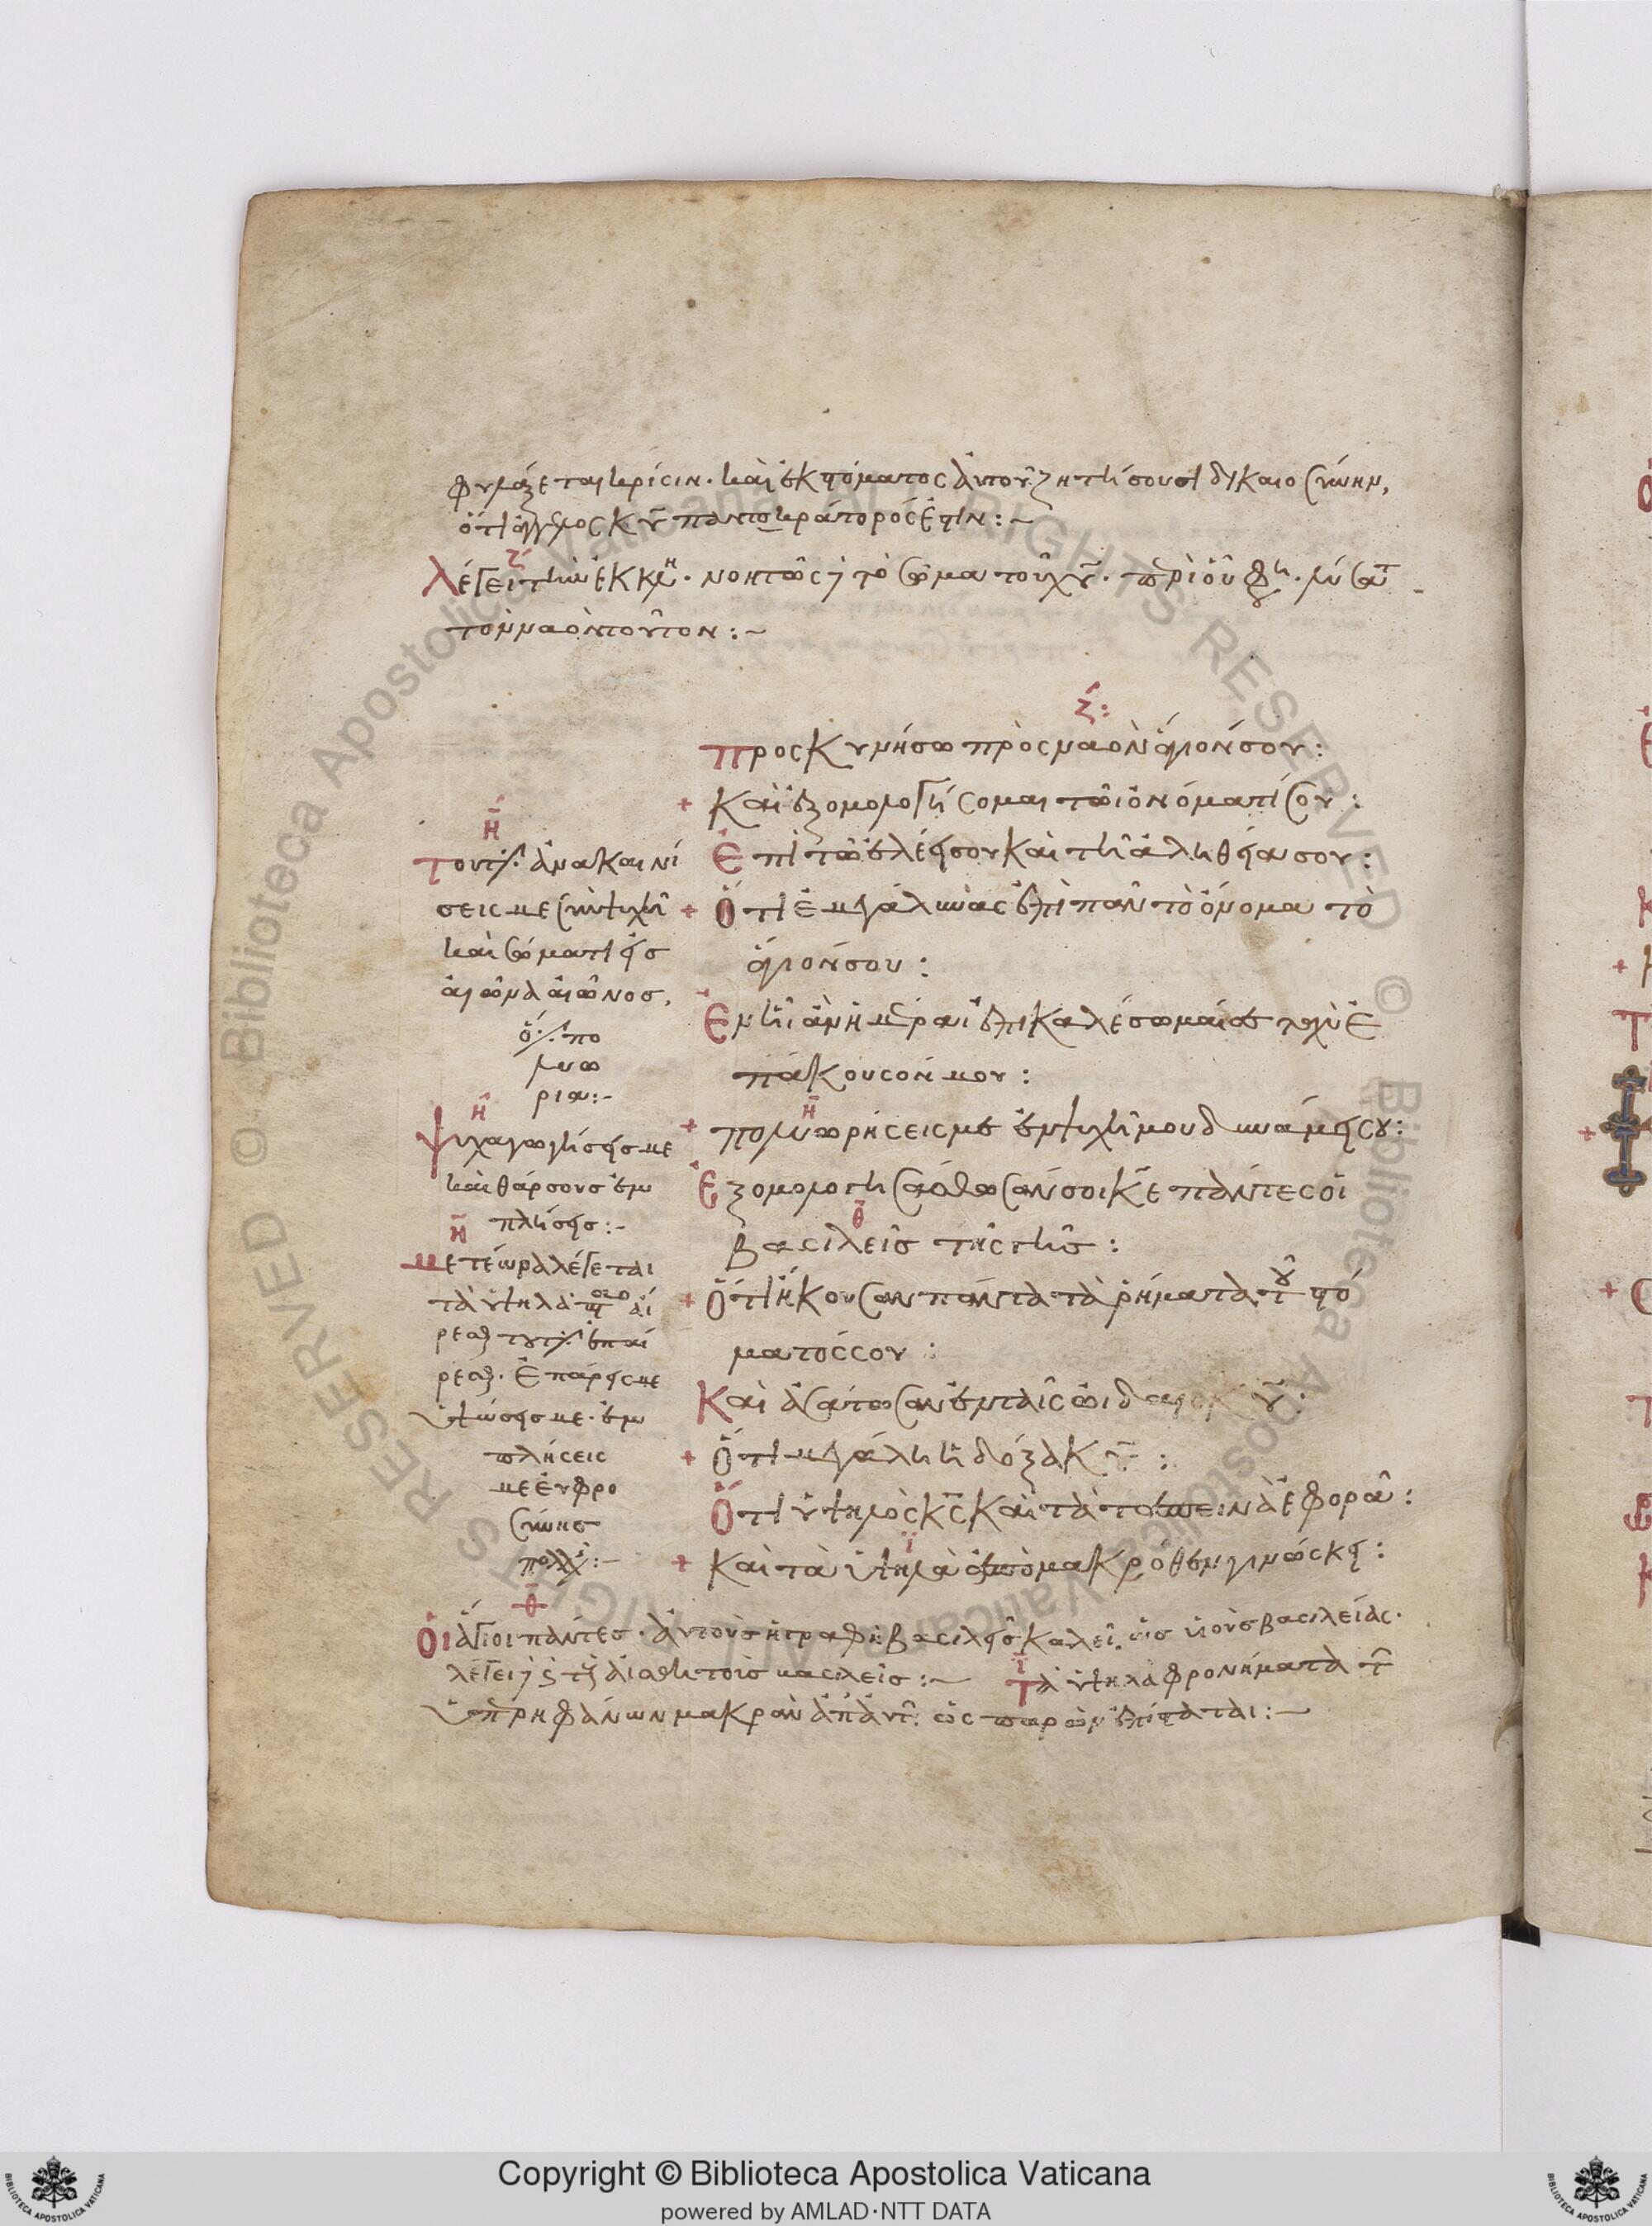 φυλάξεται κρίσιν· καὶ ἐκ στόματος ἀυτοῦ ζητήσουσι δικαιοσύνην,
ὅτι ἄγγελος κ̅υ̅ παντοκράτορός ἐστιν :~
ζ
λέγει τὴν ἐκκλη· νοητῶς τὸ σῶμα τοῦ χ̅υ̅· περὶ οὗ φη· λύσατ
τὸν ναὸν τοῦτον :~
ζ :
Προσκυνήσω πρὸς ναὸν ἅγιόν σου :
+ Καὶ ἐξομολογήσομαι τῶι ὀνόματί σου :
Ἐπὶ τῶ ἐλέει σου καὶ τῆ ἀληθεία σου :
+ Ὅτι ἐμεγάλυνας ἐπὶ πᾶν τὸ ὄνομα τὸ
ἅγιόν σου :
Ἐν ἧι ἂν ἡμέραι ἐπικαλέσωμαί σε ταχὺ ἐ
πάκουσόν μου :
η
+ πολυωρήσεις με ἐν ψυχῆ μου δυνάμει σου :
Ἐξομολογησάσθωσάν σοι κ̅ε̅ πάντες οἱ
θ
βασιλεῖς τῆς γῆς :
+ Ὅτι ἤκουσαν πάντα τὰ ῥήματα τοῦ στό
ματός σου :
Καὶ ἀσάτωσαν ἐν ταῖς ὠιδαῖς κ̅υ̅ :
+ Ὅτι μεγάλη ἡ δόξα κ̅υ̅ :
Ὅτι ὑψηλὸς κ̅ς̅ καὶ τὰ ταπεινὰ ἐφορᾶ :
ι
+ Καὶ τὰ ὑψηλὰ ἀπὸ μακρόθεν γινώσκει :
η
Τουτέστιν ἀνακαινί
σεις με σὺν ψυχῆ
καὶ σώματι εἰς
αἰῶνα αἰῶνος,
πο
λυω
ρία :-
η
Ψυχαγωγήσεις με
καὶ θάρσους ἐμ
πλήσεις :-
η
μετέωρα λέγεται
τὰ ὑψηλὰ
ἐπαί
ἐπάρεις με
ὑψώσεις με· ἐμ
πλήσεις
με ἐυφρο
σύνης
πολλῆς :-
θ
Οἱ ἅγιοι πάντες· ἀυτοὺς ἡ γραφὴ βασιλεῖς καλεῖ· ὡς υἱοὺς βασιλείας·
λέγει τοῖς βασιλεῖς :~
ι
Τὰ ὑψηλὰ φρονήματα τῶν
ὑπερηφάνων μακρὰν ἀπ' ἀυτοῦ· ὡς παρὼν ἐπίσταται :~
Copyright © Biblioteca Apostolica Vaticana
powered by AMLAD·NTT DATA